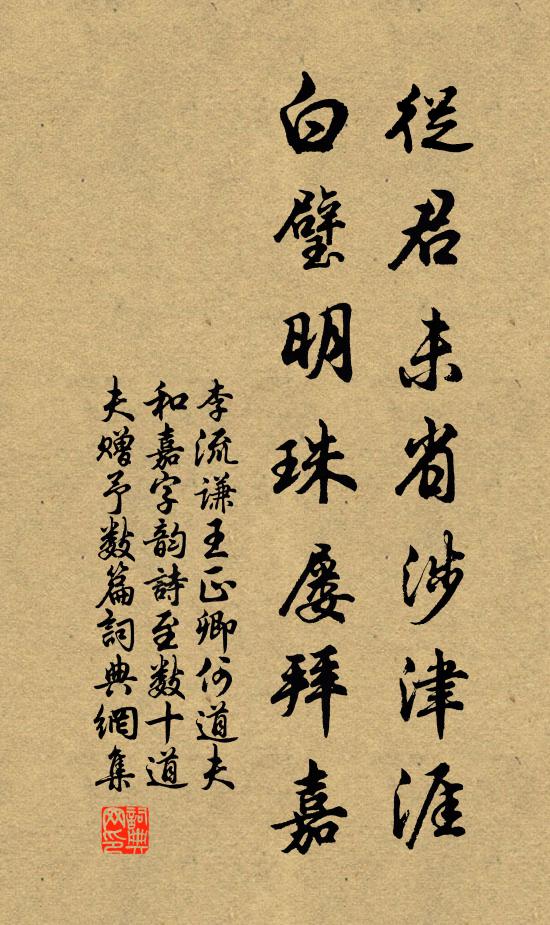 從君未省涉津涯
白璧明珠屡拜嘉
李流謙王正卿何道夫
和嘉字韵詩至数十道
夫赠予数篇詞典網集
詞典网印